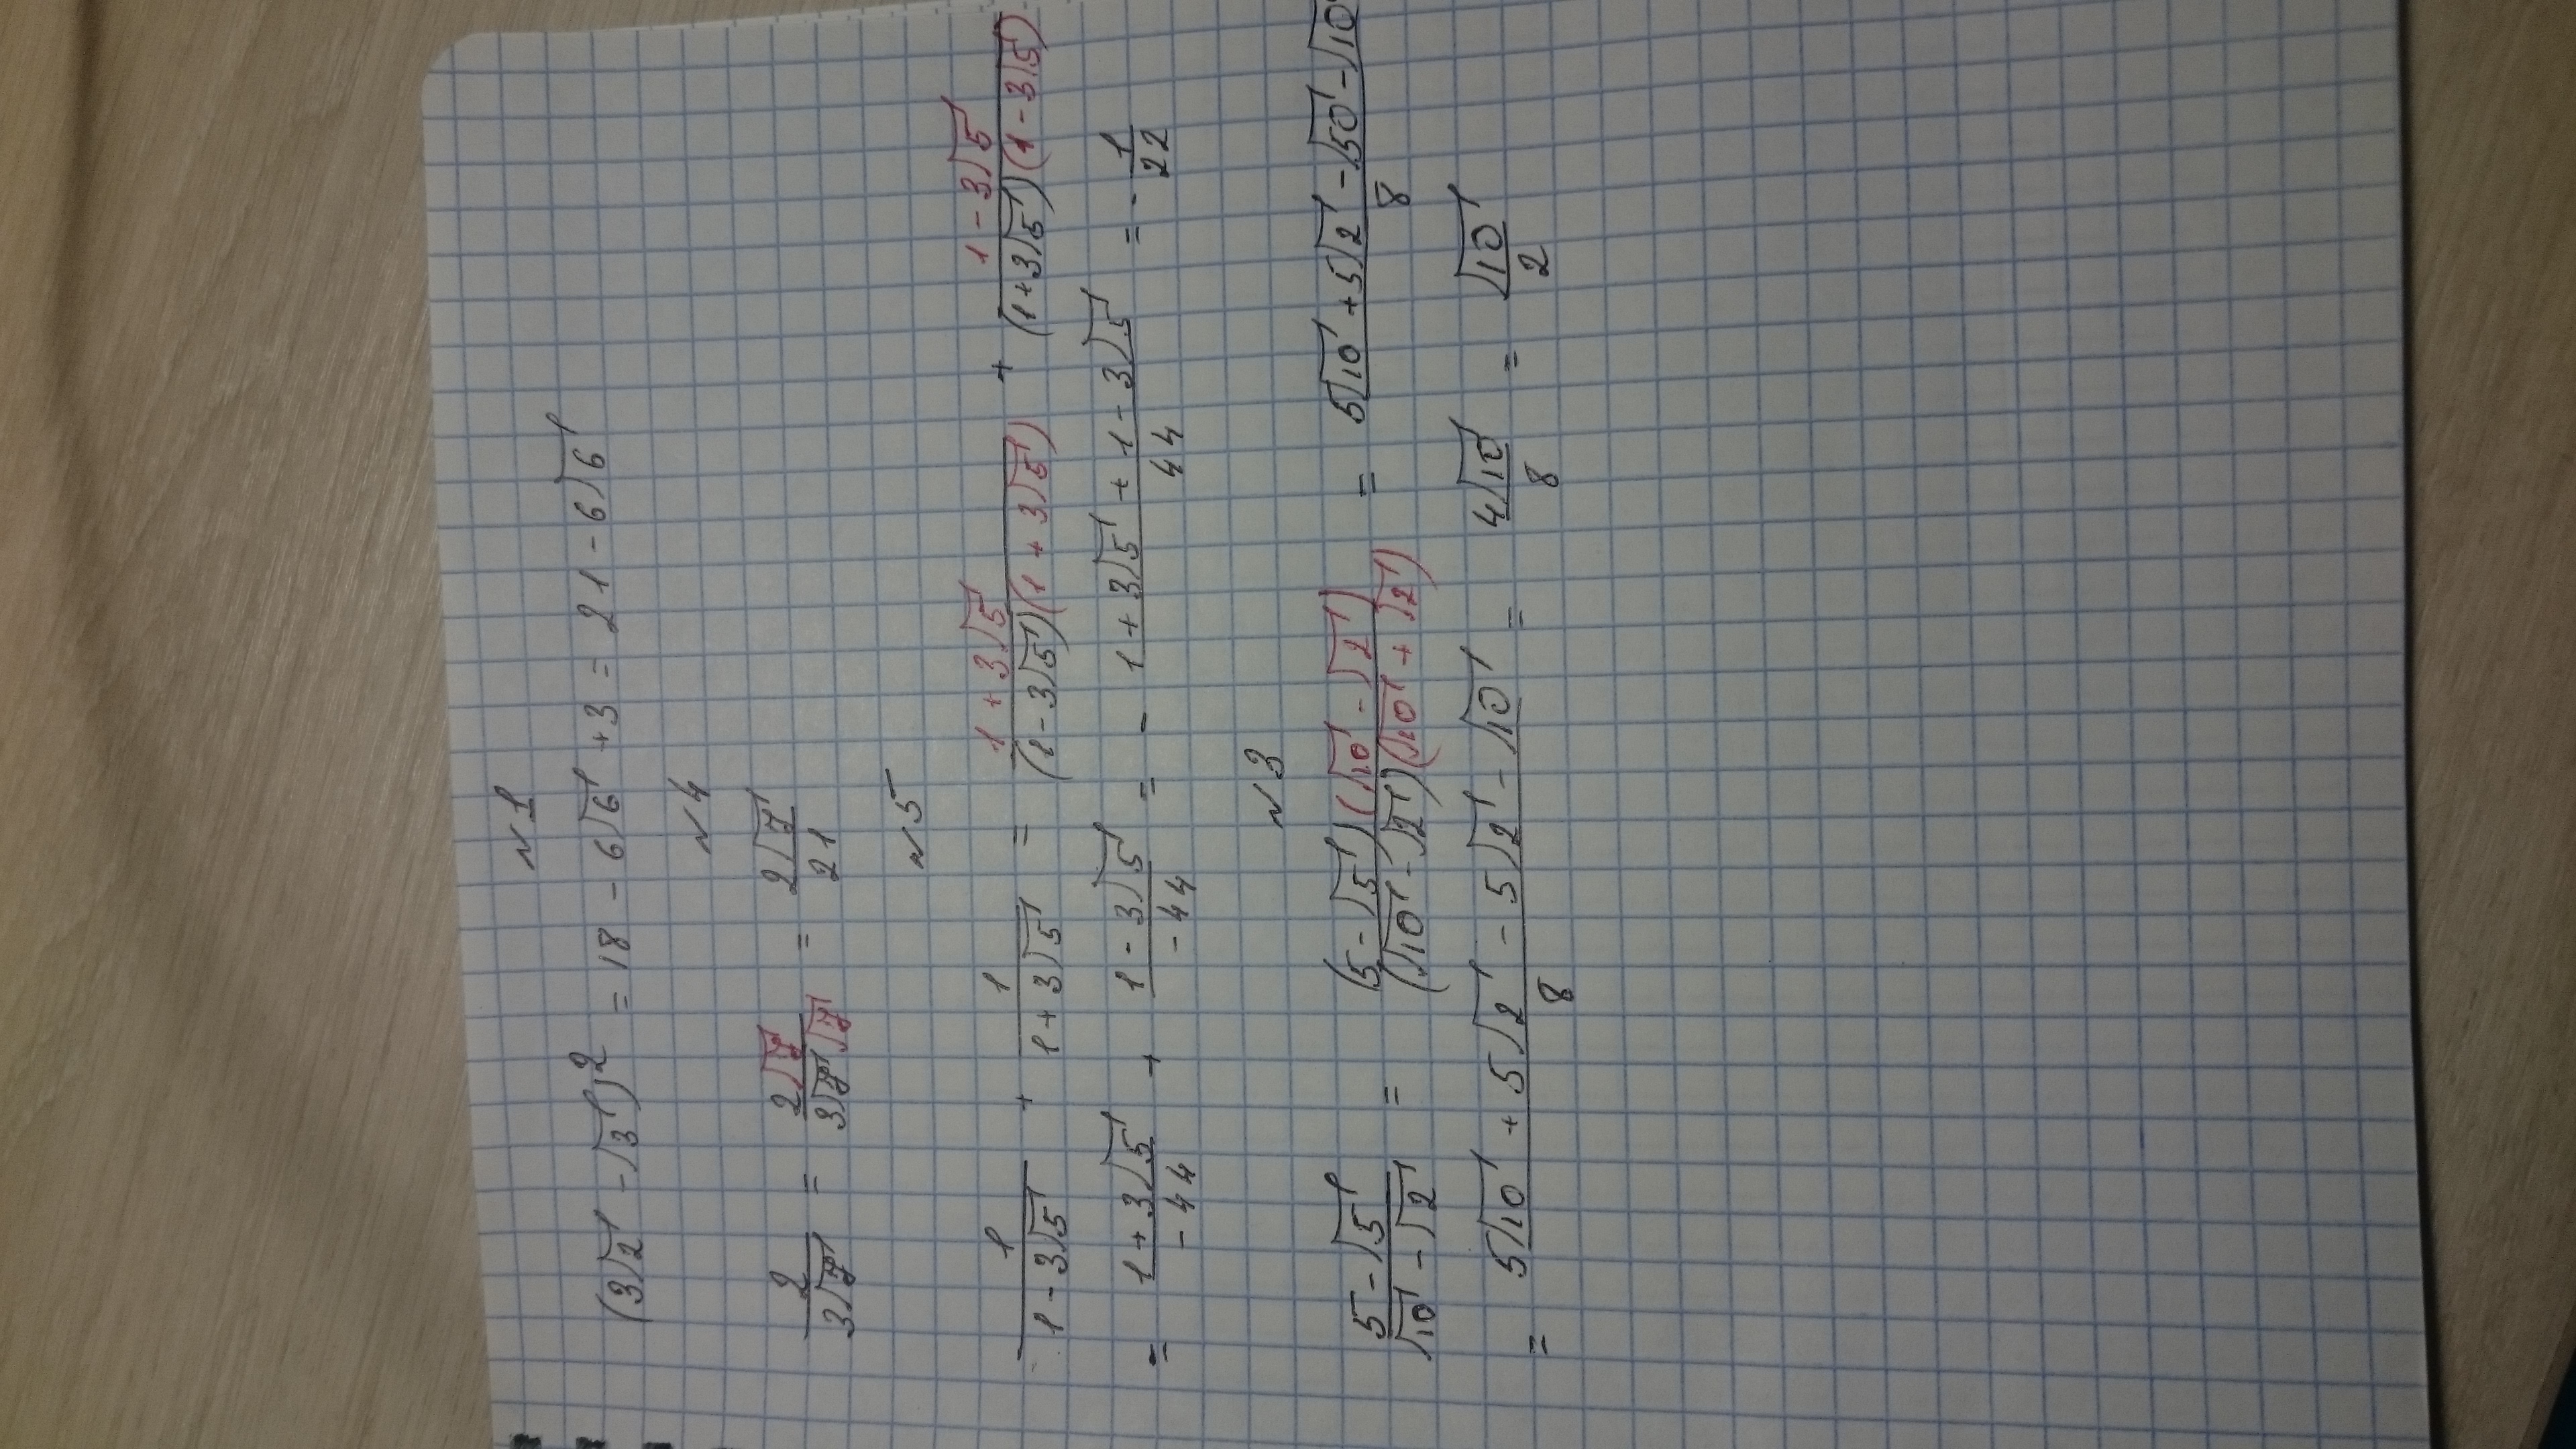 №1
(3√2 - √3)² = 18 - 6√6 + 3 = 21 - 6√6
№4
2/(3√7) = 2√7/(3√7√7) = 2√7/21
№5
1/(1 - 3√5) + 1/(1 + 3√5) = (1 + 3√5)/((1 - 3√5)(1 + 3√5)) + (1 - 3√5)/((1 + 3√5)(1 - 3√5))
= (1 + 3√5)/(-44) + (1 - 3√5)/(-44) = - (1 + 3√5 + 1 - 3√5)/44 = - 1/22
№3
(5 - √5)/(√10 - √2) = (5 - √5)(√10 - √2)/((√10 - √2)(√10 + √2)) = (5√10 + 5√2 - √50 - √10)/8
= (5√10 + 5√2 - 5√2 - √10)/8 = 4√10/8 = √10/2